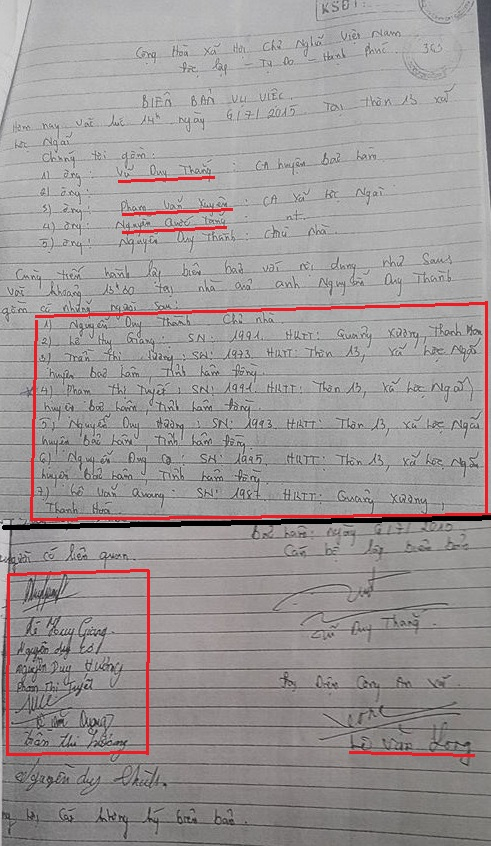 KSĐT
Cộng Hoà Xã Hội Chủ Nghĩa Việt Nam
Độc lập - Tự Do - Hạnh Phúc
BIÊN BẢN VỤ VIỆC
Hôm nay vào lúc 14h ngày 6/7/2015. Tại Thôn 13 xã
Lộc Ngãi
Chúng tôi gồm:
1) ông: Vũ Duy Thắng : CA huyện Bảo Lâm
2) ông:
3) ông: Phạm Văn Xuyên : CA xã Lộc Ngãi
4) ông: Nguyễn Quốc : nt
5) ông: Nguyễn Duy Thành : Chủ nhà
Cùng tiến hành lập biên bản với nội dung như sau:
Vào khoảng tại nhà anh Nguyễn Duy Thành
gồm có những người sau:
1) Nguyễn Duy Thành Chủ nhà
2) Lê Huy Giang : SN: 1991. HKTT: Quảng Xương, Thanh Hoá
3) Trần Thị : SN: 1973. HKTT: Thôn 13, xã Lộc Ngãi
huyện Bảo Lâm, Tỉnh Lâm Đồng.
4) Phạm Thị Tuyết : SN: 1991. HKTT: Thôn 13, xã Lộc Ngãi
huyện Bảo Lâm, Tỉnh Lâm Đồng.
5) Nguyễn Duy Hướng : SN: 1993. HKTT: Thôn 13, xã Lộc Ngãi
huyện Bảo Lâm, Tỉnh Lâm Đồng
6) Nguyễn Duy : SN: 1995. HKTT: Thôn 13, xã Lộc Ngãi
huyện Bảo Lâm, Tỉnh Lâm Đồng
7) Lê Văn Quang : SN: 1987. HKTT: Quảng Xương,
Thanh Hoá
người có liên quan.
Lê Huy Giang.
Nguyễn duy
Nguyễn Duy Hướng
Phạm Thị Tuyết
Lê Văn Quang
Trần Thị
Nguyễn duy
Bảo Lâm, ngày 6/7/2015
Cán bộ lập biên bản
Vũ Duy Thắng.
Đại Diện Công An xã
Lê Văn Long
ký biên bản.